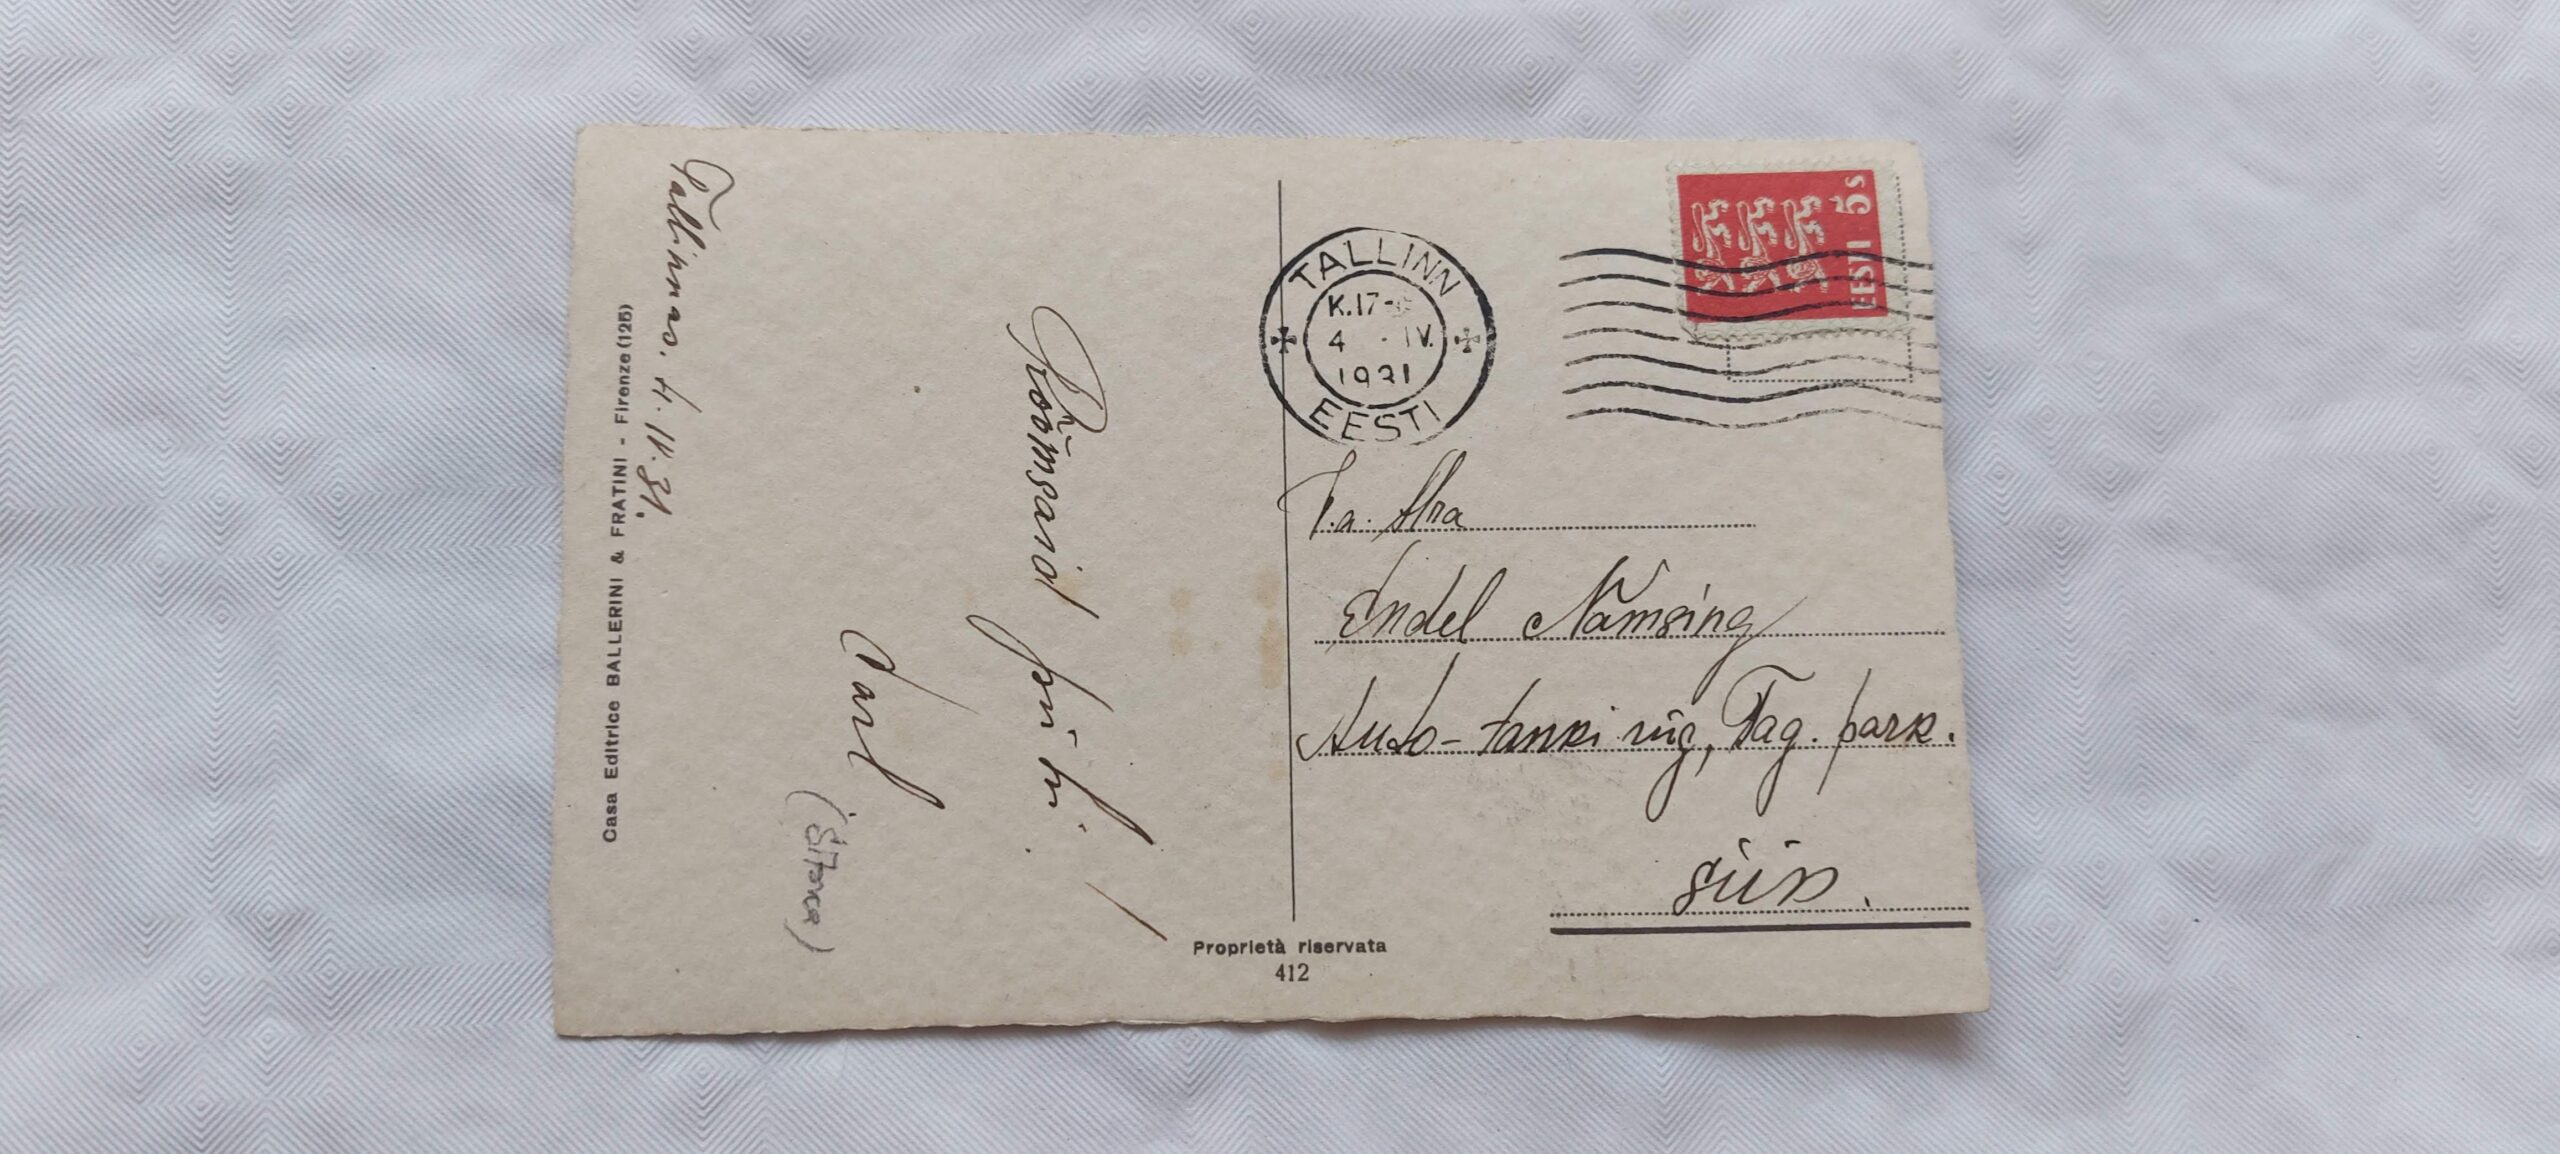 Tallinnas. 4. IV. 31.
Rõõmsaid pühi!
Carl
Casa Editrice BALLERINI & FRATINI - Firenze (125)
Proprietà riservata
412
TALLINN
K.17-
4 . IV.
1931
EESTI
EESTI 5 s
V.a. Hra
Endel Nämsing
Auto-tanki rüg, Tag. park.
siin.